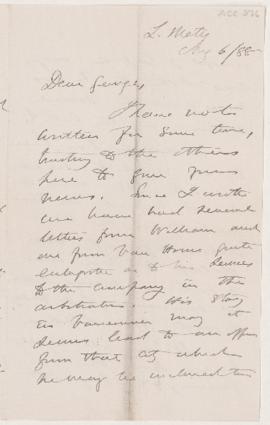 L. Metis
Aug 6/88
Dear George,
I have not
written for some time,
trusting to the others
here to give you
news. Since I wrote
we have had several
letters from William and
one from Van Horne quite
as to his services
to the company in the
arbitration. His stay
in Vancouver may it
seems lead to an offer
from that city which
he may be inclined to